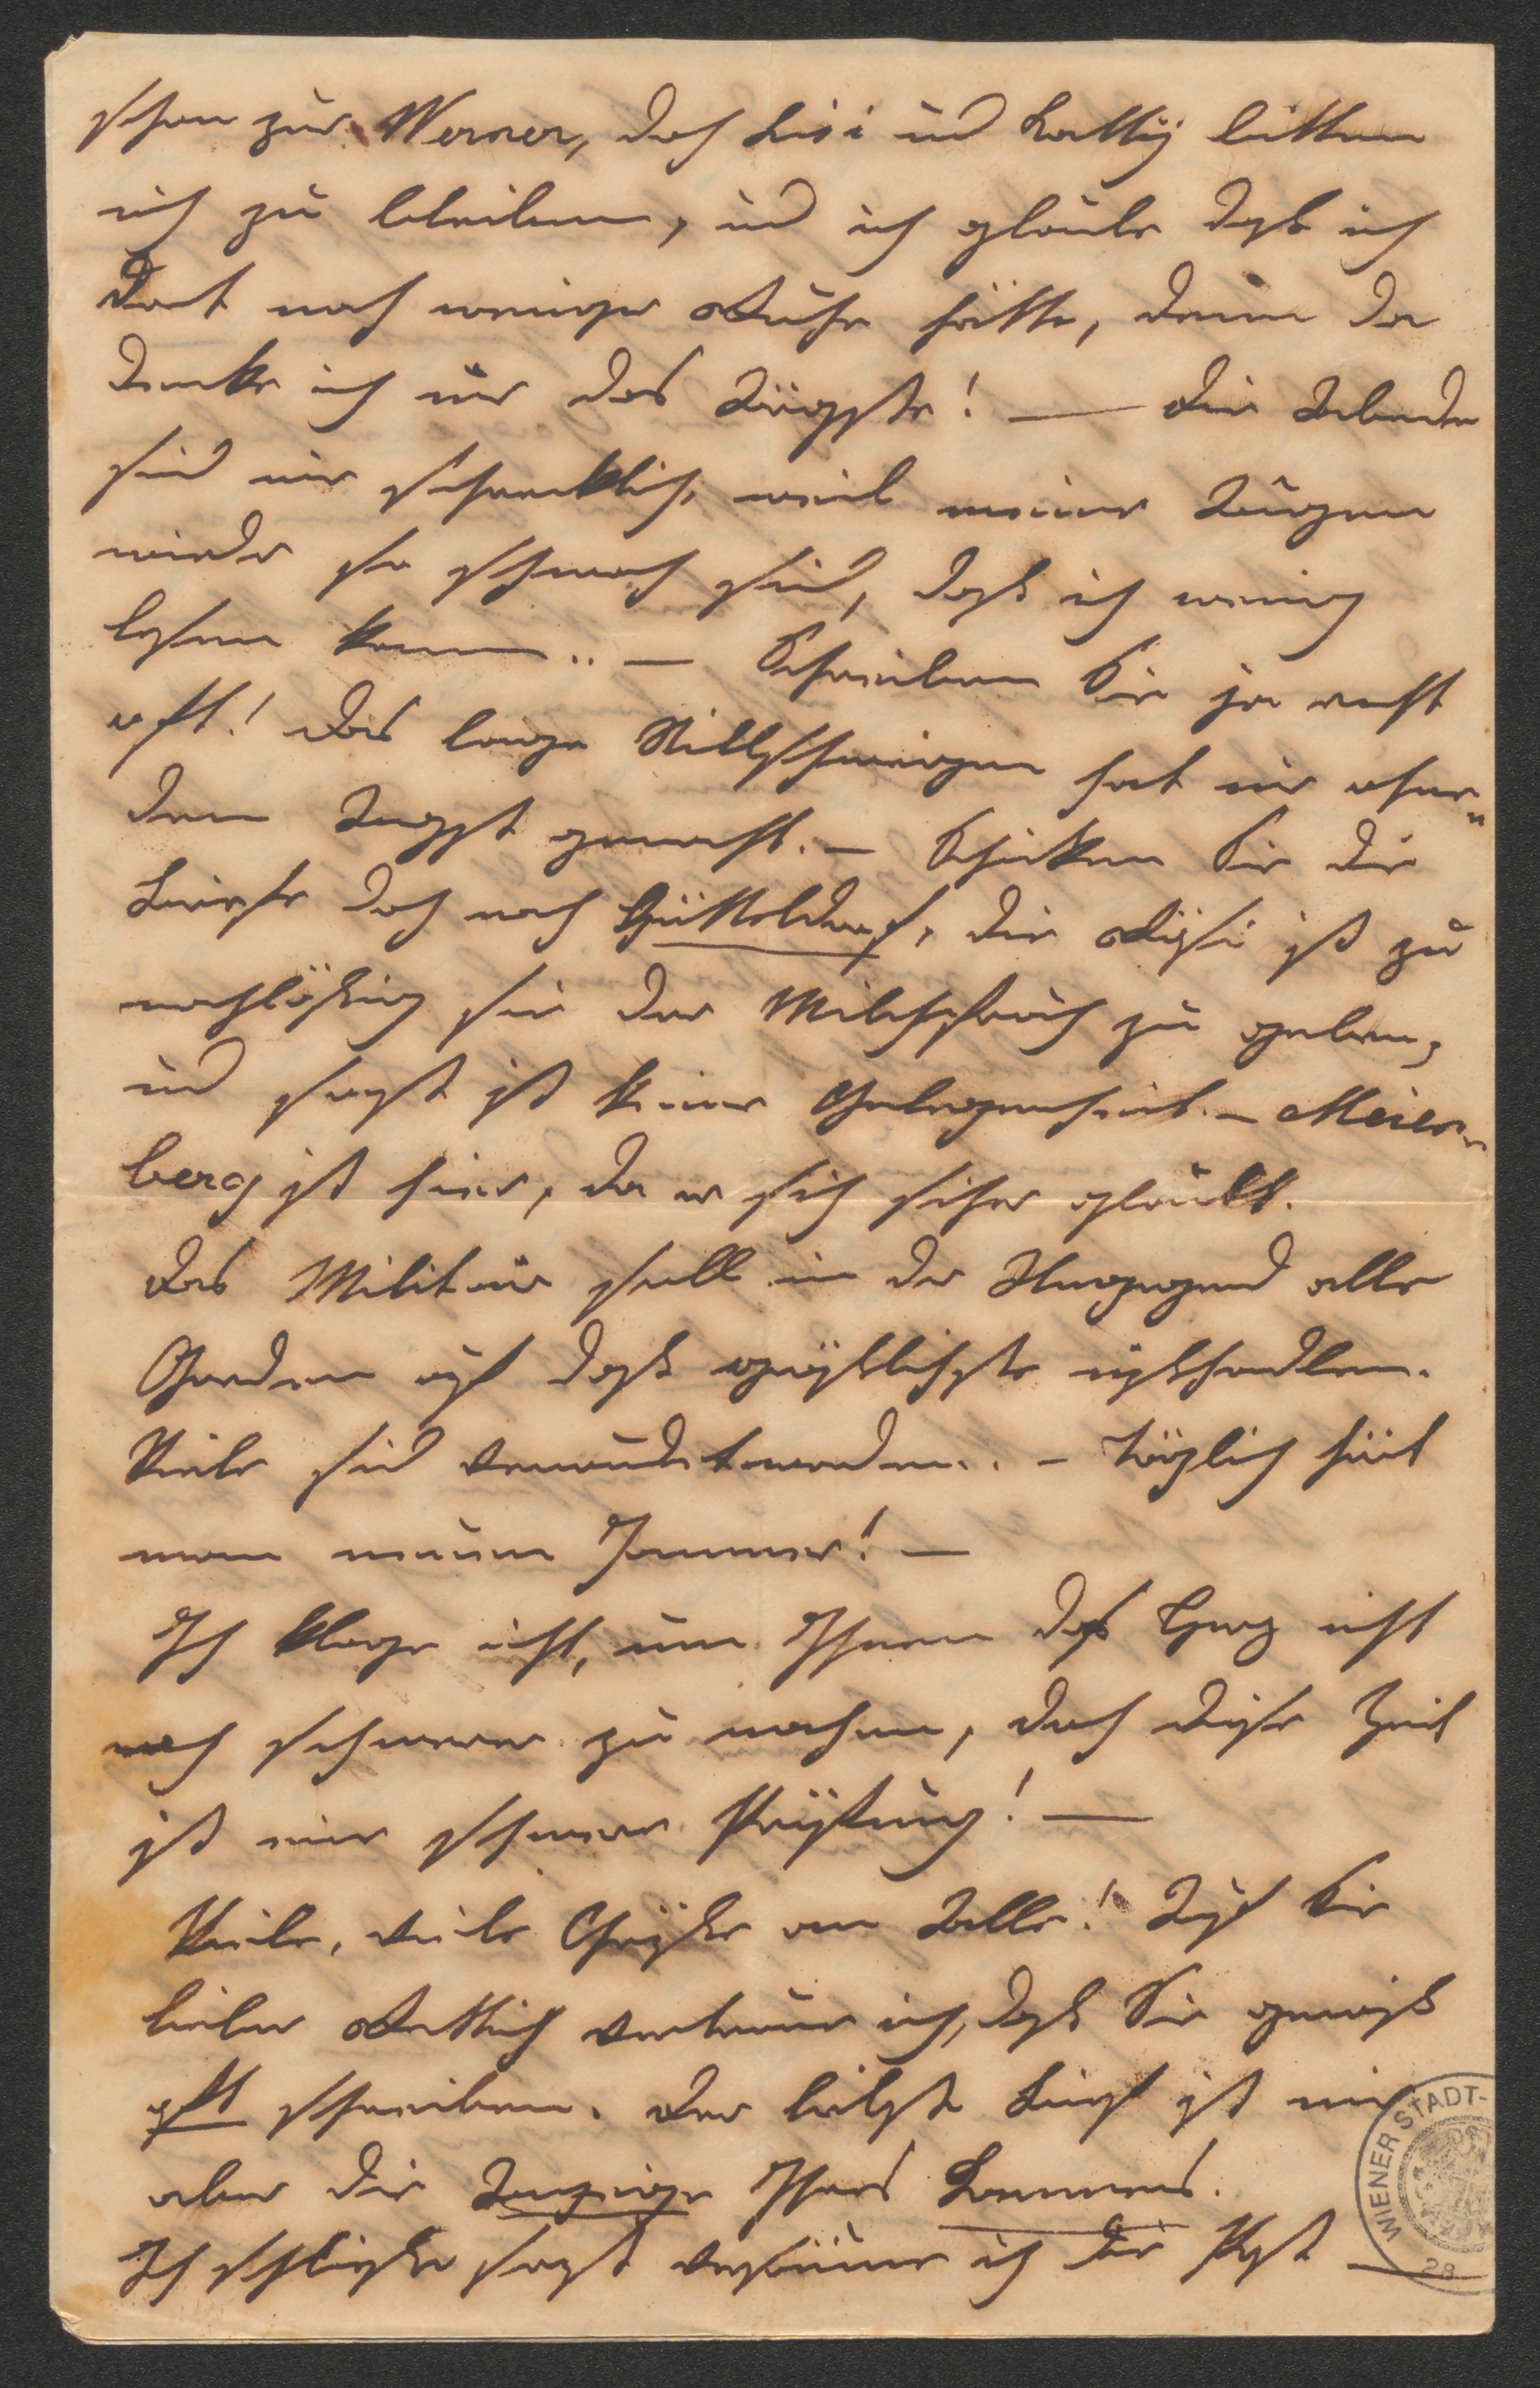 schon zur Werner, doch Lisi und Kathy bitten
mich zu bleiben, und ich glaube daß ich
dort noch weniger Ruhe hätte, denn da
denke ich mir das Ärgste! — Die Abende
sind mir schrecklich, weil meine Augen
wieder so schwach sind, daß ich wenig
lesen kann.. — Schreiben Sie ja recht
oft! Das lange Stillschweigen hat mir ohne-
dem Angst gemacht. — Schicken Sie die
Briefe doch nach Hütteldorf, die Resi ist zu
nachläßig sie der Milchfrau zu geben,
und sonst ist keine Gelegenheit. – Meier-
berg ist hier, da er sich sicher glaubt.
Das Militär soll in der Umgegend alle
Garden auf daß gräßlichste mißhandlen.
Viele sind verwundet worden.. – Täglich hört
man neuen Jammer! —
Ich klage nicht, um Ihnen das Herz nicht
noch schwerer zu machen, doch diese Zeit
ist eine schwere Prüfung! —
Viele, viele Grüße an Alle! Auf Sie
lieber Rettich vertraue ich, daß Sie gewiß
oft schreiben. Der liebste Brief ist mir
aber die Anzeige Ihres Kommens.
Ich schließe sonst versäume ich die Post —
WIENER STADT-
28